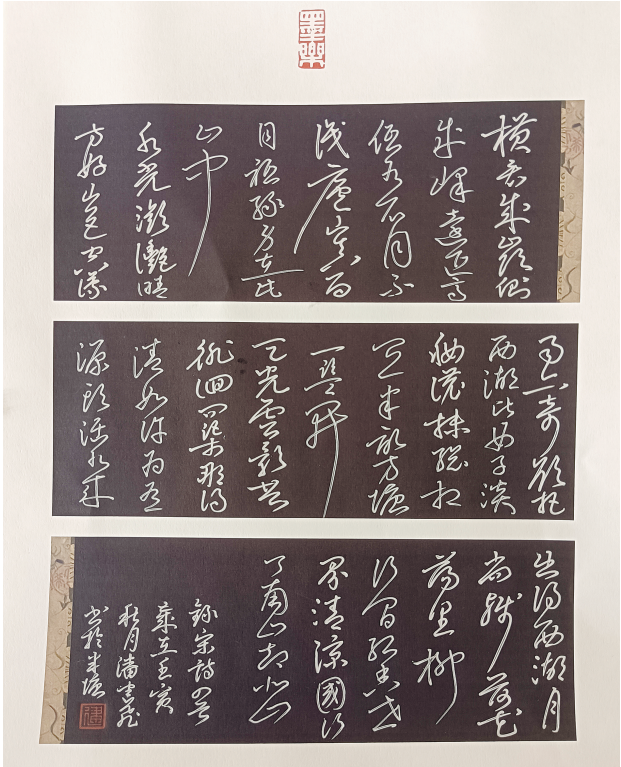 墨樂
橫看成嶺側
成峰遠近高
低各不同不
識廬山真面
目祗緣身在此
山中
水光瀲灩晴
方好山色空濛
雨亦奇欲把
西湖比西子淡
妝濃抹總相
宜半畝方塘
一鑒開
天光雲影共
徘徊問渠那得
清如許為有
源頭活水來
出得西湖月
尚殘荷花
蕩里柳
行間紅香世
界清涼國行
了南山却北山
錄宋詩四首
歲在壬寅
秋月潘
書於半塘